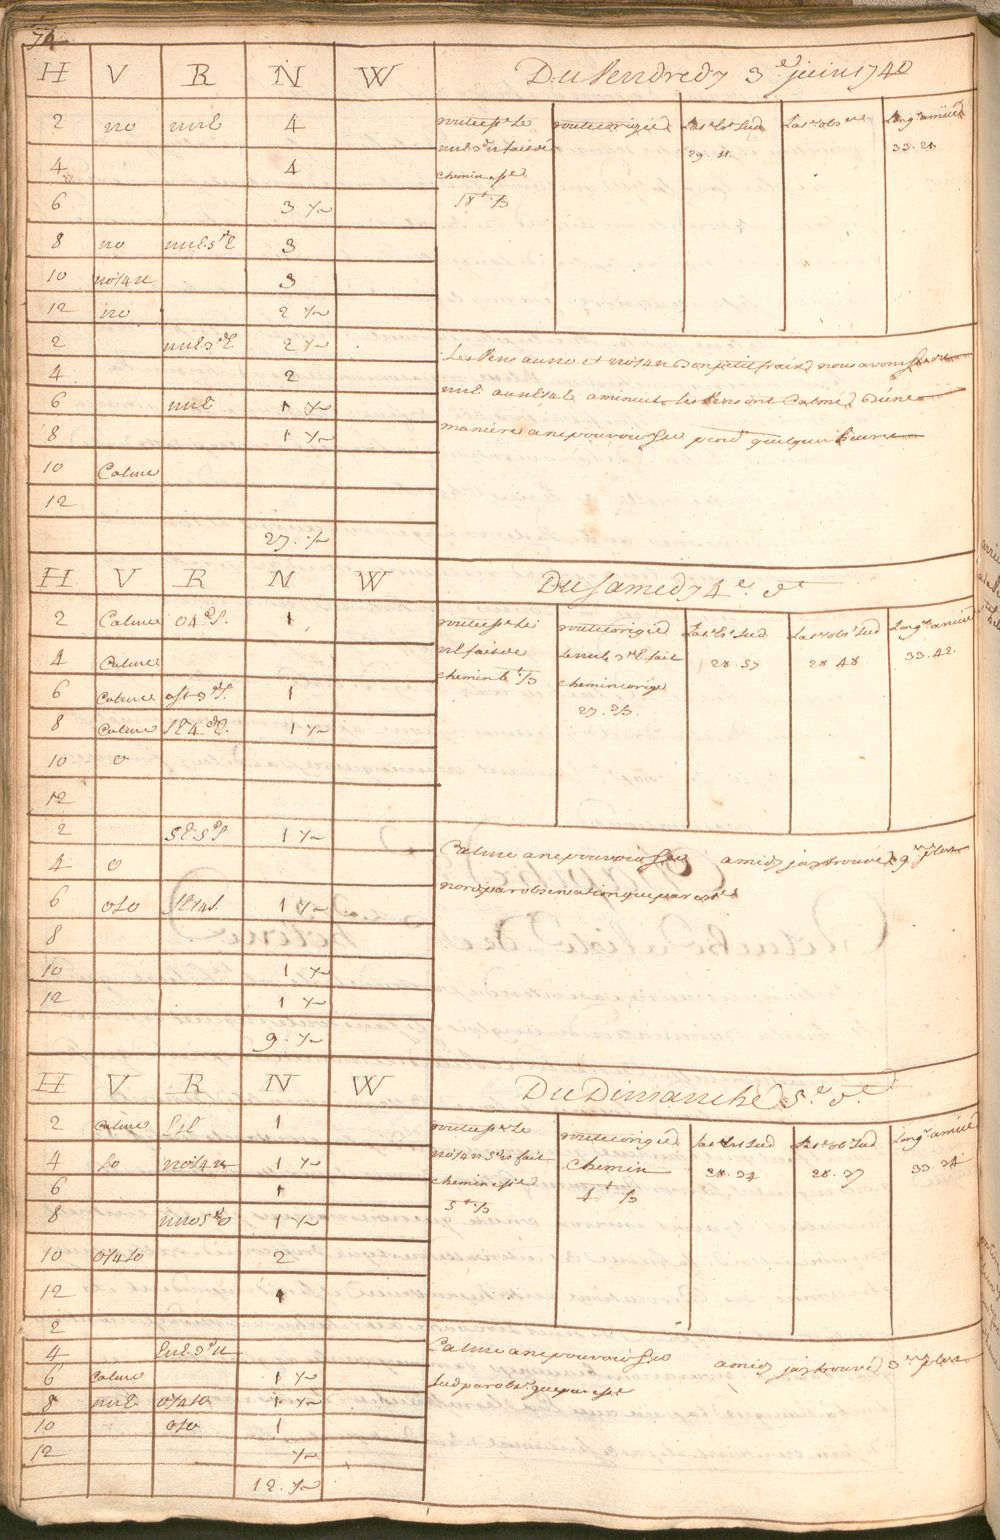 74
H V R N W Du Vendredy 3e juin 1740
2 no nne 4
4 4
6 3 ½
8 no nne 5d E 3
10 no¼n 3
12 no 2 ½
2 nne 3d E 2 ½
4 2
6 nne 1 ½
8 1 ½
10 Calme
12
27. ½
route est. Le
nne 3d n fait de
chemin est.
18 L ⅓
route corigée
Lat. est. Sud
29. 11.
Lat. obs.
Long. arrivée
33. 21
Les Vens au no et no¼n bon petit frais nous avons
nne au ne¼e a minuit les Vens ont Calmé
manière a ne pouvoir pend. quelques heures
H V R N W Du Samedy 4e de
2 Calme o4d S. 1
4 Calme
6 Calme 1
8 Calme SE4d E. 1 ½
10 o
12
2 SE5d S 1 ½
4 o
6 oso SE¼S 1 ½
8
10 1 ½
12 1 ½
9. ½
route est. Le
ne fait de
chemin 6 L ⅓
route corigée
Le nne 3d E. fait
chemin corigé
27. ⅔
Lat. est. Sud
28. 57
Lat. obs. Sud
28 48
Long. arrivée
33. 42.
Calme a ne pouvoir a midy jay trouvé 9 m plus
nord par observation que par est.
H V R N W Du Dimanche 5e de
2 Calme ese 1
4 so no¼n 1 ½
6 1
8 nno5d o 1 ½
10 o¼so 2
12 1
2
4 ene 3d n
6 Calme 1 ½
8 nne o¼so 1 ½
10 oso 1
12 ½
12. ½
route est. Le
no¼n 5d n fait
chemin est.
5 L ⅓
route corigée
chemin
4 L ⅓
Lat. est. Sud
28. 34
Lat. obs. Sud
28. 37
Long. arrivée
33. 24
Calme a ne pouvoir a midy jay trouvé 3 m plus
Sud par obs. que par est.